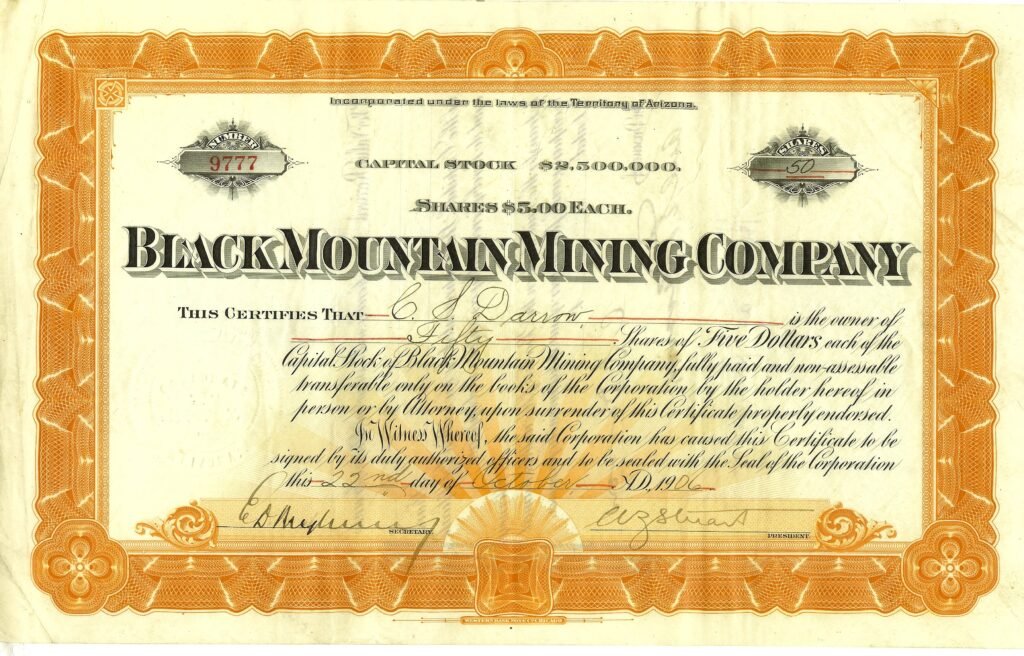 Incorporated under the laws of the Territory of Arizona.
NUMBER
9777
SHARES
50
CAPITAL STOCK $2,500,000.
SHARES $5.00 EACH.
BLACK MOUNTAIN MINING COMPANY
THIS CERTIFIES THAT C. S. Darrow is the owner of
Fifty Shares of Five Dollars each of the
Capital Stock of Black Mountain Mining Company, fully paid and non-assessable
transferable only on the books of the Corporation by the holder hereof in
person or by Attorney, upon surrender of this Certificate properly endorsed.
In Witness Whereof, the said Corporation has caused this Certificate to be
signed by its duly authorized officers and to be sealed with the Seal of the Corporation
this 22nd day of October A.D. 1906
SECRETARY.
Stuart
PRESIDENT.
WESTERN BANK NOTE CO. CHICAGO